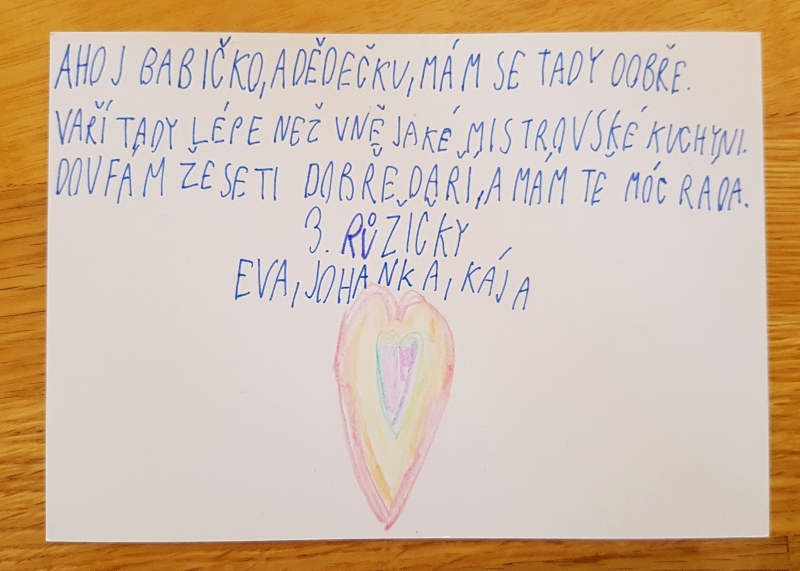 AHOJ BABIČKO, A DĚDEČKU, MÁM SE TADY DOBŘE.
VAŘÍ TADY LÉPE NEŽ V NĚJAKÉ MISTROVSKÉ KUCHYNI.
DOUFÁM ŽE SE TI DOBŘE DAŘÍ, A MÁM TĚ MÓC RADA.
3. RŮŽIČKY
EVA, JOHANKA, KÁJA